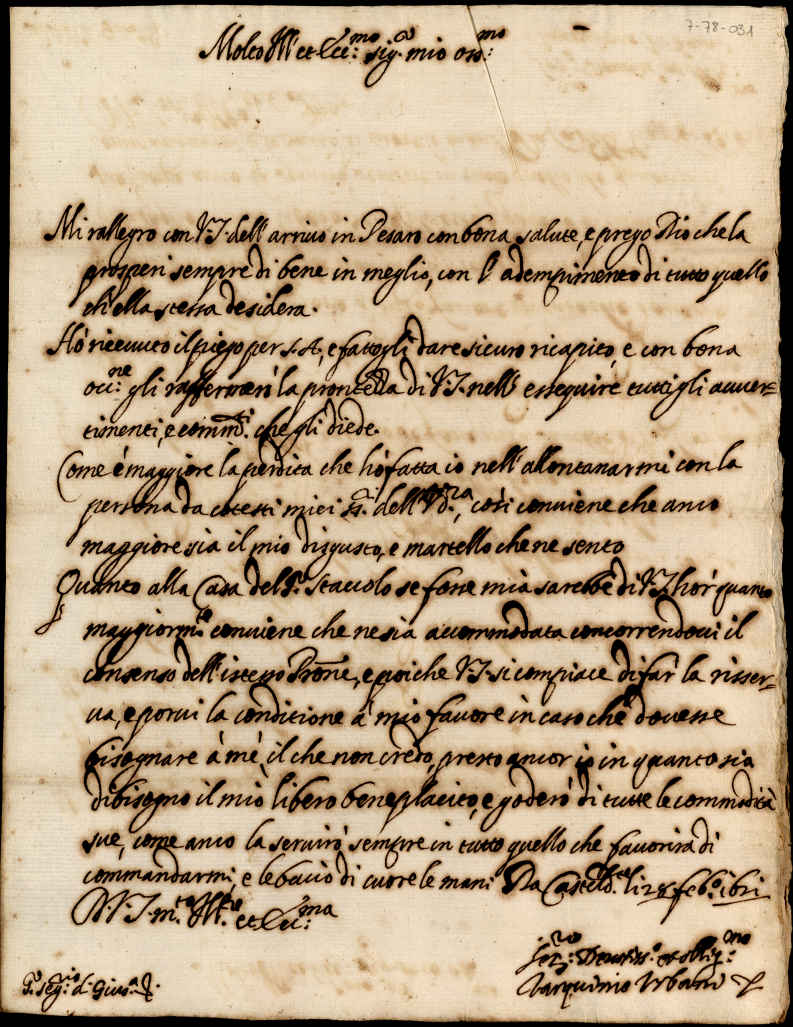 7-78-031
Molto Ill. et Ecc.mo sig.r mio oss.mo
Mi rallegro con V.S. dell'arrivo in Pesaro con bona salute, e prego Dio che la
prosperi sempre di bene in meglio, con l'adempimento di tutto quello
ch'ella stessa desidera.
Hò riceuuto il piego per S.A., e fattogli dare sicuro ricapito, e con bona
occ.ne gli raffermerò la prontezza di V.S. nell'essequire tutti gli auuer-
timenti, e comm.ti che gli diede.
Come è maggiore la perdita che hò fatta io nell'allontanarmi con la
persona da cotesti miei ss.ri dell', così conuiene che anco
maggiore sia il mio disgusto, e martello che ne sento
Quanto alla Casa del S.r Staccolo se fosse mia sarebbe di V.S. hor quanto
maggiorm.te conuiene che ne sia accommodata concorrendoui il
consenso dell'istesso Prone, e poiche V.S. si compiace di far la risser-
ua, e porui la conditione à mio fauore in caso che douesse
bisognare à mè, il che non credo, presto ancor io in quanto sia
dibisogno il mio libero beneplacito, e goderò di tutte le commodità
sue, come anco la seruirò sempre in tutto quello che fauorirà di
commandarmi, e le bacio di cuore le mani Da Casteld.te li 28 feb.o 1621
D. V.S. m.to Ill.re et Ecc.ma
Ser.re Deuotiss.o et oblig.mo
Tarquinio Urbani